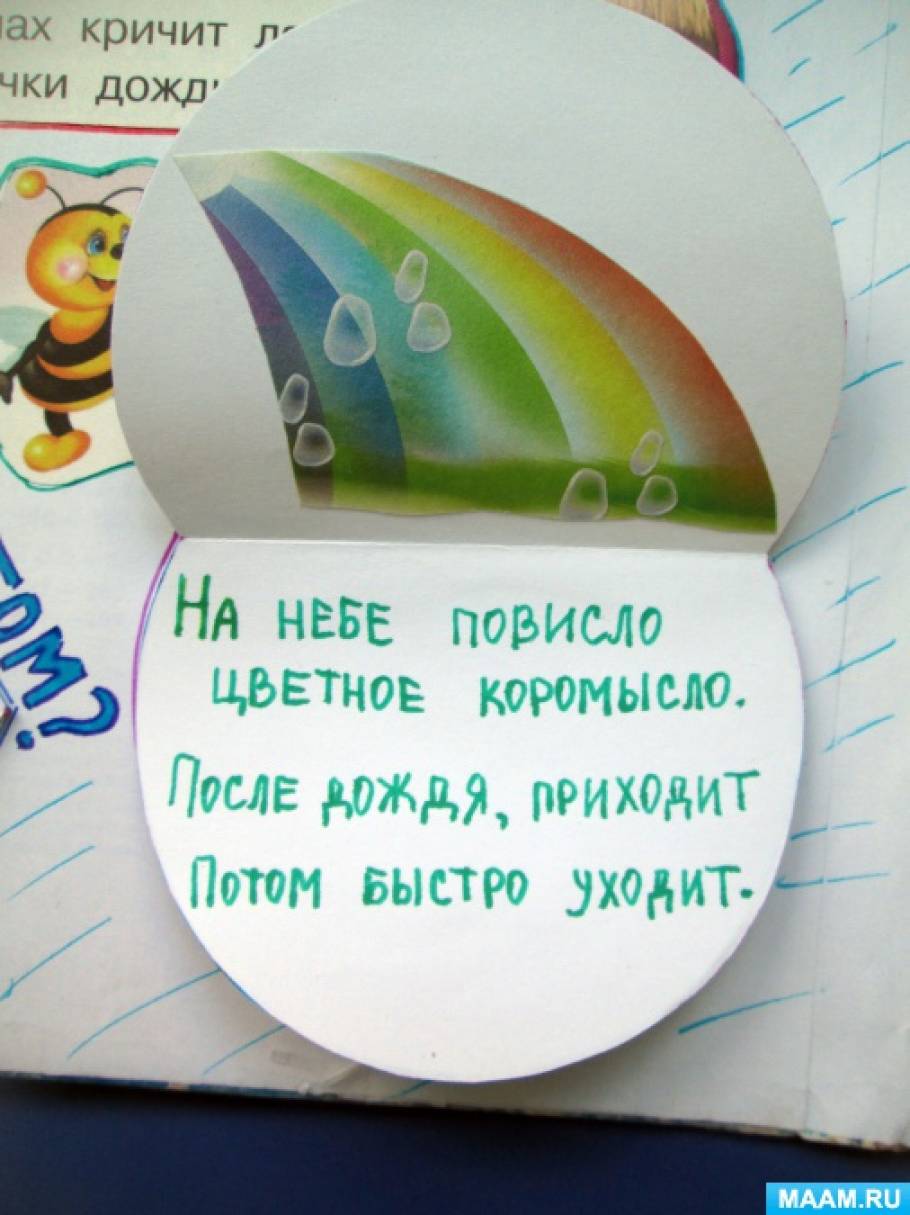 кричит
чки
НА НЕБЕ ПОВИСЛО
ЦВЕТНОЕ КОРОМЫСЛО.
ПОСЛЕ ДОЖДЯ, ПРИХОДИТ
ПОТОМ БЫСТРО УХОДИТ.
ТОМ?
MAAM.RU